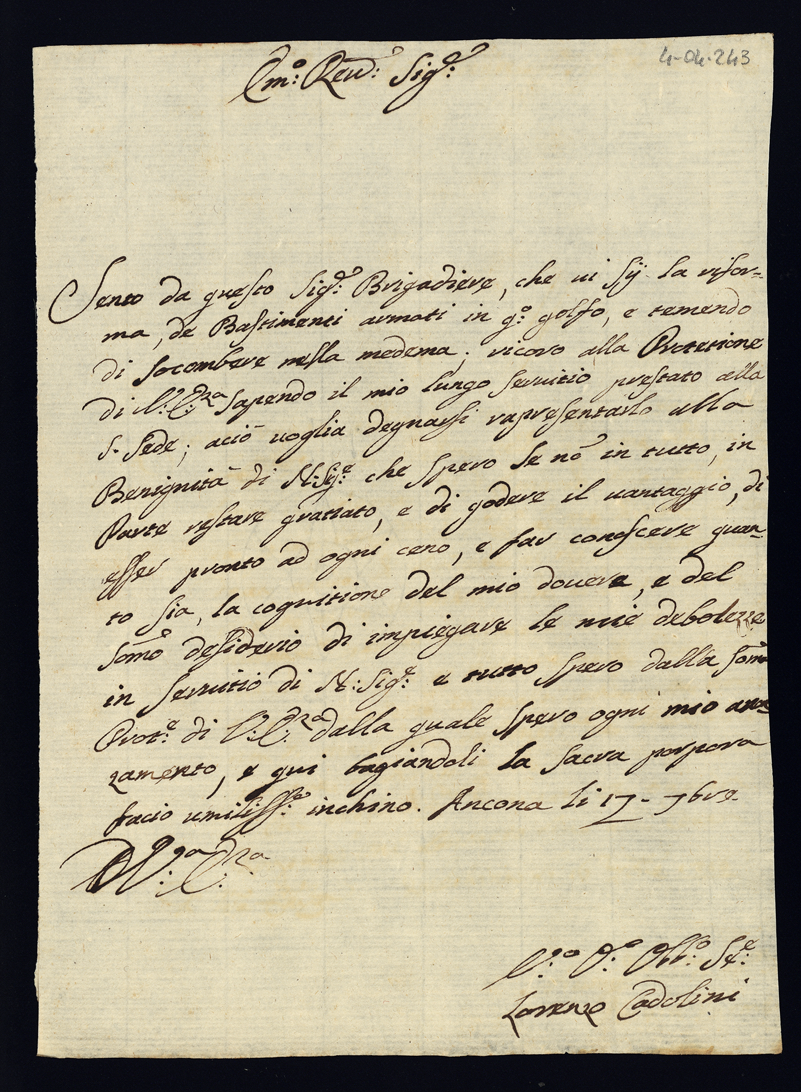 4-04-243
Em:o Reu:d Sig:e
Sento da questo Sig:e Brigadiere, che ui sÿ la rifor=
ma, de Bastimenti armati in q:o golfo, e temendo
di socombere nella medema; ricoro alla Protetione
di V:E:ra sapendo il mio lungo seruitio prestato alla
S. Sede; aciò uoglia degnarsi rapresentarlo alla
Benignità di N:Sig:e che spero se nō in tutto, in
Parte restare gratiato, e di godere il uantaggio, di
esser pronto ad ogni ceno, e far conoscere quan=
to sia, la cognitione del mio douere, e del
somō desiderio di impiegare le mie debolezze
in seruitio di N:Sig:e e tutto spero dalla som̄a
Prot:e di V:E:ra dalla quale spero ogni mio auan=
zamento, e qui bagiandoli la sacra porpora
facio umiliss:o inchino. Ancona li 17- 7bre.
D V:ra E:ra
V:o D:o Obb:o Se:e
Lorenzo Cadolini